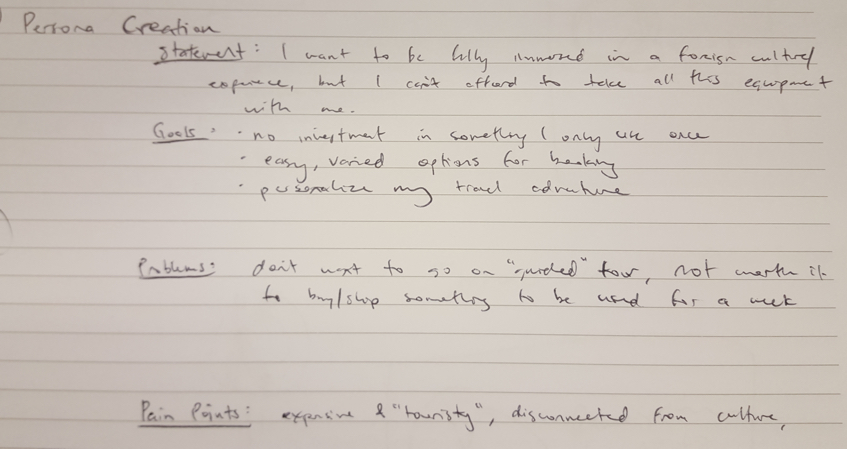 Persona Creation
Statement: I want to be fully immersed in a foreign culture/
experience, but I can't afford to take all this equipment
with me.
Goals: · no investment in something I only use once
· easy, varied options for booking
· personalize my travel adventure
Problems: don't want to go on "guided" tour, not worth it
to buy/ship something to be used for a week
Pain Points: expensive & "touristy", disconnected from culture,